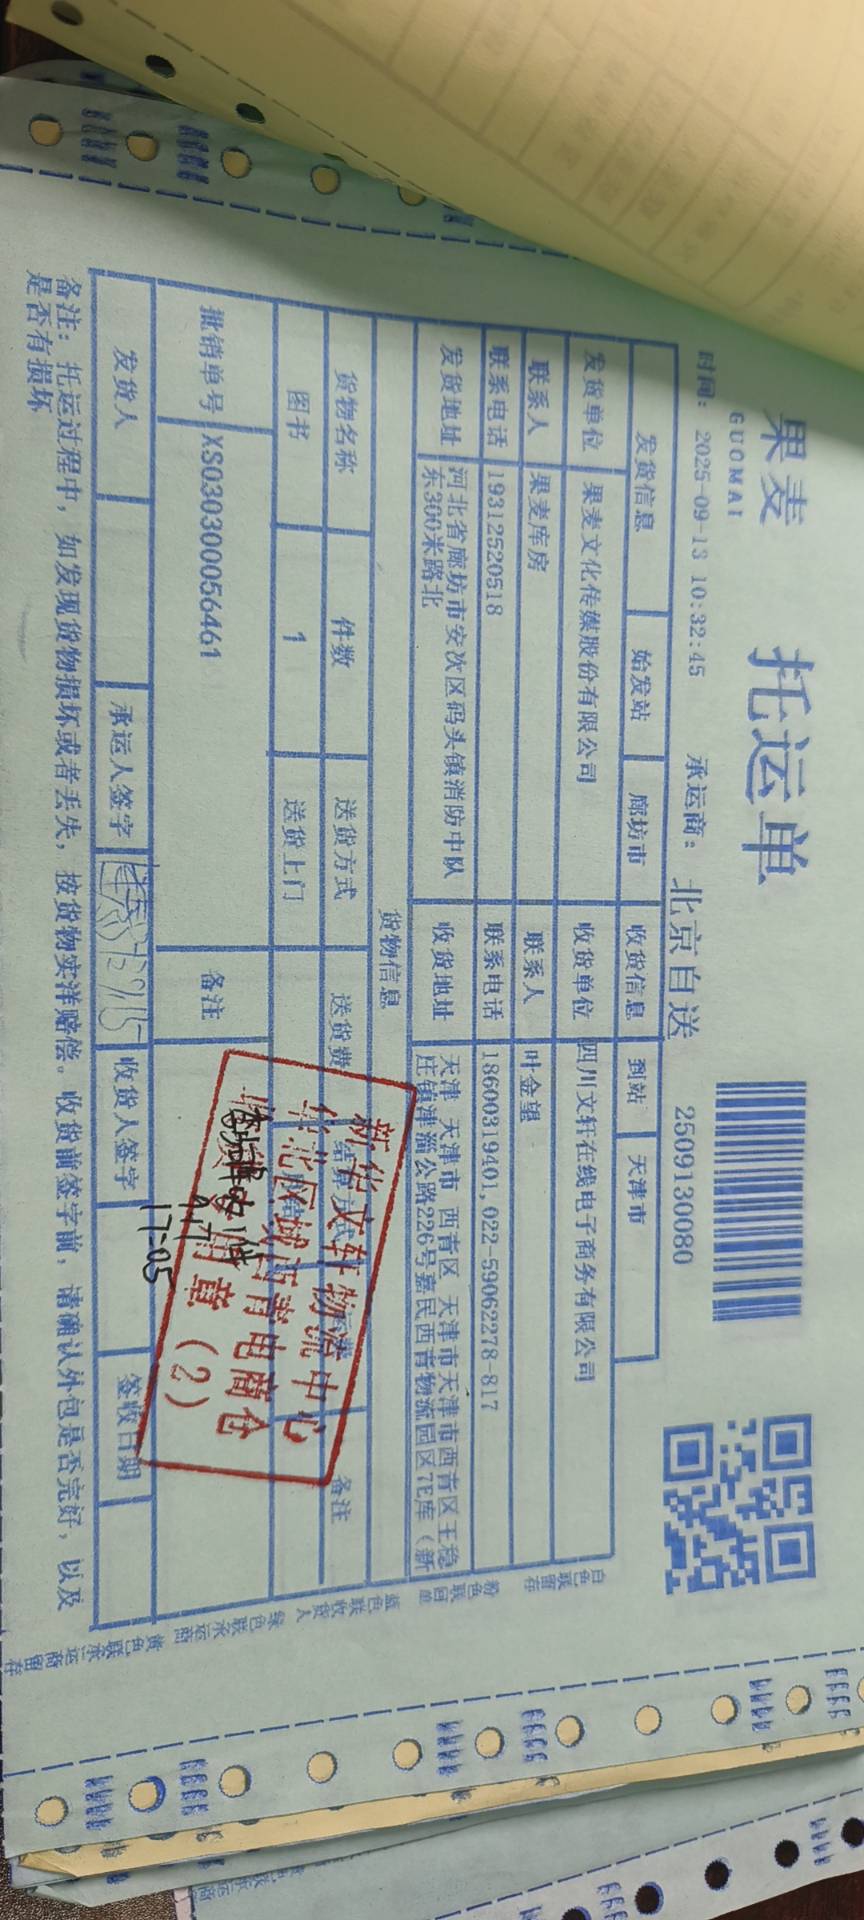 果麦
GUOMAI
托运单
时间: 2025-09-13 10:32:45 承运商: 北京自送 2509130080
发货信息 始发站 廊坊市 收货信息 到站 天津市
发货单位 果麦文化传媒股份有限公司 收货单位 四川文轩在线电子商务有限公司
联系人 果麦库房 联系人 叶金望
联系电话 19312520518 联系电话 18600319401,022-59062278-817
发货地址 河北省廊坊市安次区码头镇消防中队
东300米路北
收货地址 天津 天津市 西青区 天津市天津市西青区王稳
庄镇津淄公路226号嘉民西青物流园区7E库（新
货物信息
货物名称 件数 送货方式 送货费 结算方式 备注
图书 1 送货上门
批销单号 XS030300056461 备注
发货人 承运人签字 收货人签字 签收日期
新华文轩物流中心
华北区域西青电商仓
章（2）
17:05
备注: 托运过程中，如发现货物损坏或者丢失，按货物实洋赔偿。收货前签字前，请确认外包是否完好，以及
是否有损坏
白色联留存
粉色联回单
蓝色联收货人
绿色联承运商
黄色联承运商留存